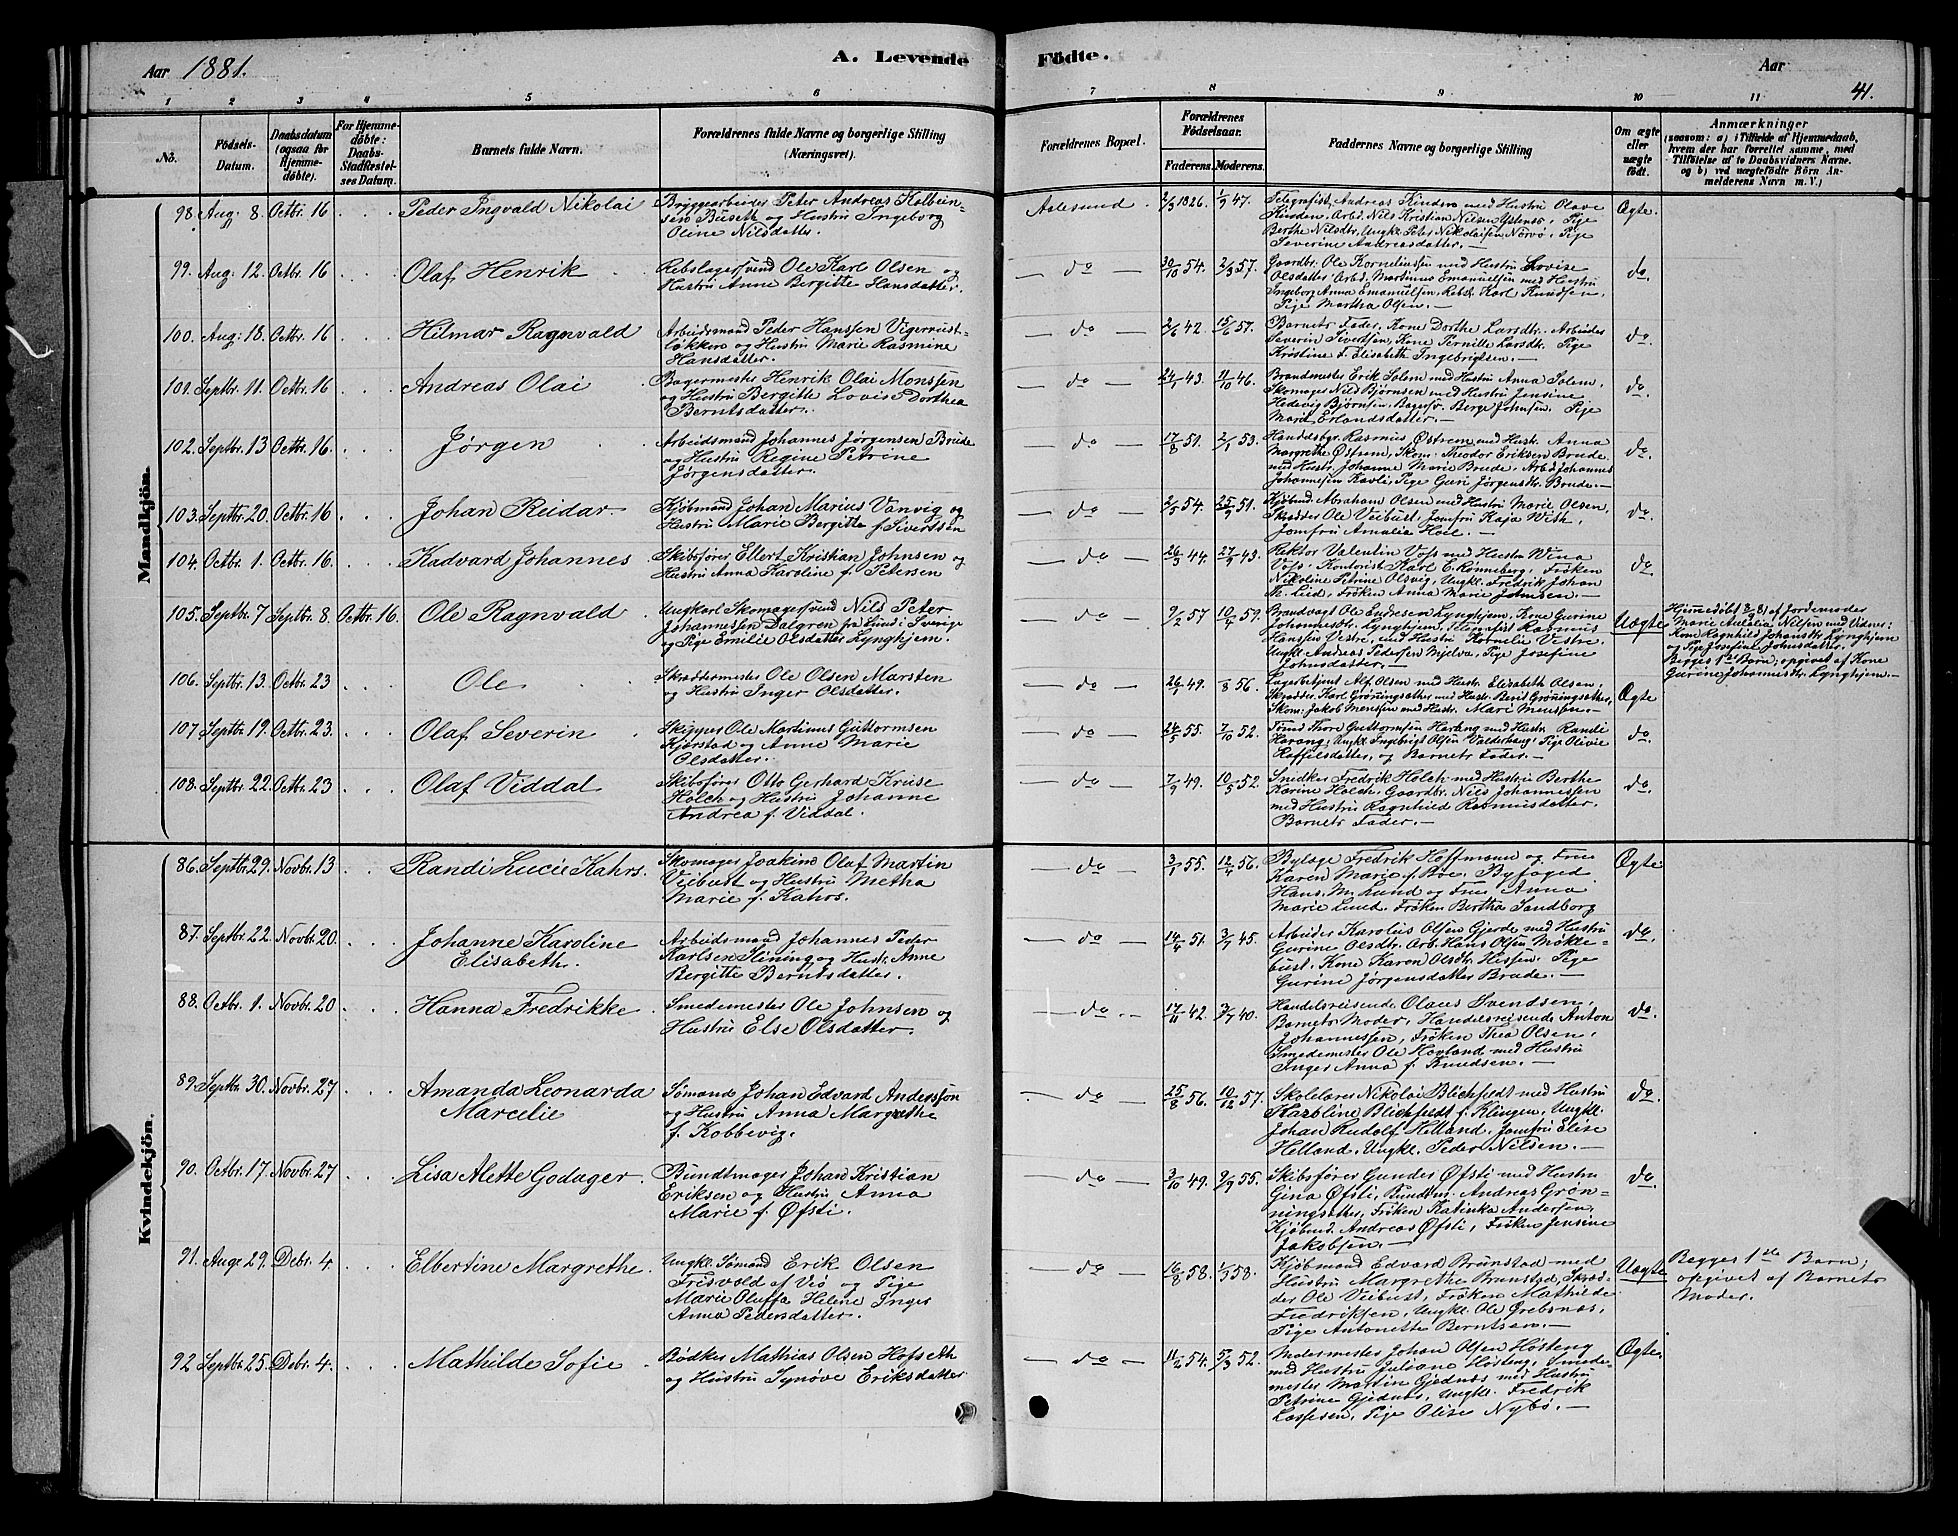 Aar 1881.
A. Levende
Födte.
Aar
41.
1 2 3 4 5 6 7 8 9 10 11
No.
Födsels-Datum.
Daabsdatum (ogsaa for Hjemme-döbte).
For Hjemme-döbte: Daabs-Stadfæstel-ses Datum.
Barnets fulde Navn.
Forældrenes fulde Navne og borgerlige Stilling (Næringsvei).
Forældrenes Bopæl.
Forældrenes Födselsaar.
Faderens. Moderens.
Faddernes Navne og borgerlige Stilling
Om ægte eller uægte födt.
Anmærkninger
(saasom: a) i Tilfælde af Hjemmedaab,
hvem der har forrettet samme, med
Tilföielse af to Daabsvidners Navne.
og b) ved uægtefödte Börn An-
melderens Navn m. V.)
Mandkjön.
98. Aug: 8. Octbr. 16 Peder Ingvald Nikolai
Bryggearbeider Peter Andreas Kolbein-
sen Buseth og Hustru Ingeborg
Oline Nilsdatter.
Aalesund 2/3 1826. 1/7 47.
Telegrafist Andreas Kinden med Hustru Olave
Kinden, Arb. Nils Kristian Nilsen Ystenes, Pige
Berthe Nilsdtr, Ungkl. Peter Nikolaisen Nörvö, Pige
Severine Andreasdatter.
Ægte.
99. Aug: 12. Octbr. 16 Olaf Henrik
Rebslagersvend Ole Karl Olsen og
Hustru Anne Bergitte Hansdatter.
do 30/10 54. 2/3 57.
Gaardbr. Ole Korneliussen med Hustru Lovise
Olsdatter, Arbd. Martinus Emanuelsen med Hustru
Ingeborg Anna Emanuelsen, Rebsl. Karl Knudsen,
Pige Martha Olsen.
do.
100. Aug: 18. Octbr. 16 Hilmar Ragnvald
Arbeidsmand Peder Hanssen Vigernust-
løkken og Hustru Marie Rasmine
Hansdatter.
do 2/6 42. 15/6 57.
Barnets Fader, Kone Dorthe Larsdtr. Arbeider
Severin Sivertsen, Kone Pernille Larsdtr. Pige
Kristine F. Elisabeth Ingebrigtsen.
do.
101. Septbr. 11. Octbr. 16 Andreas Olai
Bagermester Henrik Olai Monssen
og Hustru Bergitte Lovise Dorthea
Berntsdatter.
do 24/1 43. 11/10 46.
Brandmester Erik Solem med Hustru Anna Solem,
Skomager Nils Bjørnsen med Hustru Jensine
Hedevig Bjørnsen, Bagersv. Berge Johnsen, Pige
Marie Erlandsdatter.
do.
102. Septbr. 13 Octbr. 16. Jørgen
Arbeidsmand Johannes Jørgensen Brude
og Hustru Regine Petrine
Jörgensdatter.
do 17/8 51. 2/1 53.
Handelsbgr. Rasmus Østrem med Hustr. Anna
Margrethe Østrem, Skom. Theodor Eriksen Brude
med Hustr. Johanne Marie Brude, Arb. Johannes
Johannesen Kavli, Pige Guri Jörgensdtr. Brude.
do.
103. Septbr. 20. Octbr. 16 Johan Reidar
Kjöbmand Johan Marius Vanvig og
Hustru Marie Bergitte f. Sivertsen
do 2/5 54. 25/9 51.
Kjöbmd. Abraham Olsen med Hustru Marie Olsen,
Skrædder Ole Veibust, Jomfru Kaja With,
Jomfru Amalia Hoel.
do.
104. Octbr. 1. Octbr. 16. Kadvard Johannes
Skibsfører Ellert Kristian Johnsen og
Hustru Anna Karoline f. Petersen
do 26/3 44. 27/5 43.
Rektor Valentin Voss med Hustru Wina
Voss, Kontorist Karl E. Rønneberg, Frøken
Nikoline Petrine Olsvig, Ungkl. Fredrik Johan
M. Lied, Frøken Anna Marie Johnsen.
do
105. Septbr. 7 Septbr. 8. Octbr. 16. Ole Ragnvald
Ungkarl Skomagersvend Nils Peter
Johannessen Dalgren fra Lund i Sverige
og Pige Emilie Olsdatter Lynghjem.
do 9/2 57 10/4 59.
Brandvagt Ole Endresen Lynghjem, Kone Gurine
Johannesdtr. Lynghjem, Rasmus
Hanssen Vestre, med Hustru Kornelia Vestre,
Ungkl. Andreas Pedersen Mjelva, Pige Josefine
Johnsdatter.
Uægte
Hjemmedöbt 8/9 81 af Jordemoder
Marie Aurelia Nilsen med Vidner:
Kone Ragnhild Johansdtr. Lynghjem
og Pige Josefine Johnsdatter.
Begges 1ste Barn; opgivet af Kone
Gurine Johannesdtr. Lynghjem.
106. Septbr. 13. Octbr. 23 Ole
Skræddermester Ole Olsen Marsten
og Hustru Inger Olsdatter.
do 26/1 49. /8 56.
Lagerbetjent Alf Olsen med Hustr. Elisabeth Olsen,
Skrædder Karl Grøningsæther med Hustr. Berit Grøningsæther,
Skom. Jakob Monssen med Hustr. Mari Monssen.
Ægte
107 Septbr. 19. Octbr. 23. Olaf Severin
Skipper Ole Martinus Guttormsen
Kjerstad og Anne Marie
Olsdatter.
do 24/5 55. 7/10 52.
Thore Guttormsen Harang med Hustr. Randi
Harang, Ungkl. Ingebrigt Olsen Valderhaug, Pige Olivie
Roffelsdatter, og Barnets Fader.
do.
108. Septbr. 22. Octbr. 23 Olaf Viddal
Skibsfører Otto Gerhard Kruse
Holck og Hustru Johanne
Andrea f. Viddal.
do 7/9 49. 10/5 52.
Snidker Fredrik Holck med Hustru Berthe
Karine Holck, Gaardbr. Nils Johannessen
med Hustru Ragnhild Rasmusdatter.
Barnets Fader.
do.
Kvindekjön.
86. Septbr. 29. Novbr. 13 Randi Lucie Kahrs.
Skomager Joakim Olaf Martin
Veibust og Hustru Metha
Marie f. Kahrs.
do 3/1 55. 12/4 56.
Bylæge Fredrik Hoffmann og Frue
Karen Marie f. Boe, Byfoged
Hans M. Lund og Frue Anna
Marie Lund. Frøken Bertha Sandborg
Ægte
87. Septbr. 22. Novbr. 20. Johanne Karoline
Elisabeth.
Arbeidsmand Johannes Peder
Karlsen Slining og Hustr. Anne
Bergitte Berntsdatter.
do 14/4 51. 3/7 45.
Arbeider Karolus Olsen Gjerde med Hustru
Gurine Olsdtr. Arb. Hans Olsen Møkle-
bust, Kone Karen Olsdtr. Hessen, Pige
Gurine Jörgensdatter Brude.
do.
88. Octbr. 1. Novbr. 20 Hanna Fredrikke
Smedemester Ole Johnsen og
Hustru Else Olsdatter.
do. 17/11 42. 3/7 40.
Handelsreisende Olaus Svendsen,
Barnets Moder, Handelsreisende Anton
Johannessen, Frøken Thea Olsen,
Smedemester Ole Hovland med Hustru
Inger Anna f. Knudsen.
do.
89. Septbr. 30. Novbr. 27 Amanda Leonarda
Marcelie
Sömand Johan Edvard Anderssön
og Hustru Anna Margrethe
f. Kobbevig.
do 25/8 56. 10/12 57.
Skolelærer Nikolai Blichfeldt med Hustru
Karoline Blichfeldt f. Klingen, Ungkl.
Johan Rudolf Helland, Jomfru Elise
Helland, Ungkl. Peder Nilsen.
do.
90. Octbr. 17. Novbr. 27 Lisa Alette Godager
Bundtmager Johan Kristian
Eriksen og Hustru Anna
Marie f. Øfsti.
do 3/10 49. 9/9 55.
Skibsfører Gunder Øfsti med Hustru
Gina Øfsti, Bundtm. Andreas Grøn-
ningsæther, Frøken Katinka Andersen,
Kjöbmd. Andreas Øfsti, Frøken Jensine
Jakobsen.
do.
91. Augs 29. Debr. 4 Elbertine Margrethe.
Ungkl. Sömand Erik Olsen
Fresvold af Veö og Pige
Marie Oluffa Helene Inger
Anna Pedersdatter.
do 16/8 58. 1/3 58.
Kjöbmand Edvard Brunstad med
Hustru Margrethe Brunstad, Skræd-
der Ole Veibust, Frøken Mathilde
Fredriksen, Ungkl. Ole Grebsnæs,
Pige Antonette Berntsen.
Uægte
Begges 1ste Barn;
opgivet af Barnets
Moder.
92 Septbr. 25. Debr. 4. Mathilde Sofie
Bødker Mathias Olsen Hofseth
og Hustru Synøve Eriksdatter
do 11/2 54. 5/3 52.
Malermester Johan Olsen Høsteng
med Hustru Juliane Høsteng, Smede-
mester Martin Gjednæs med Hustru
Petrine Gjednæs, Ungkl. Fredrik
Lassesen, Pige Olise Nybø.
Ægte.